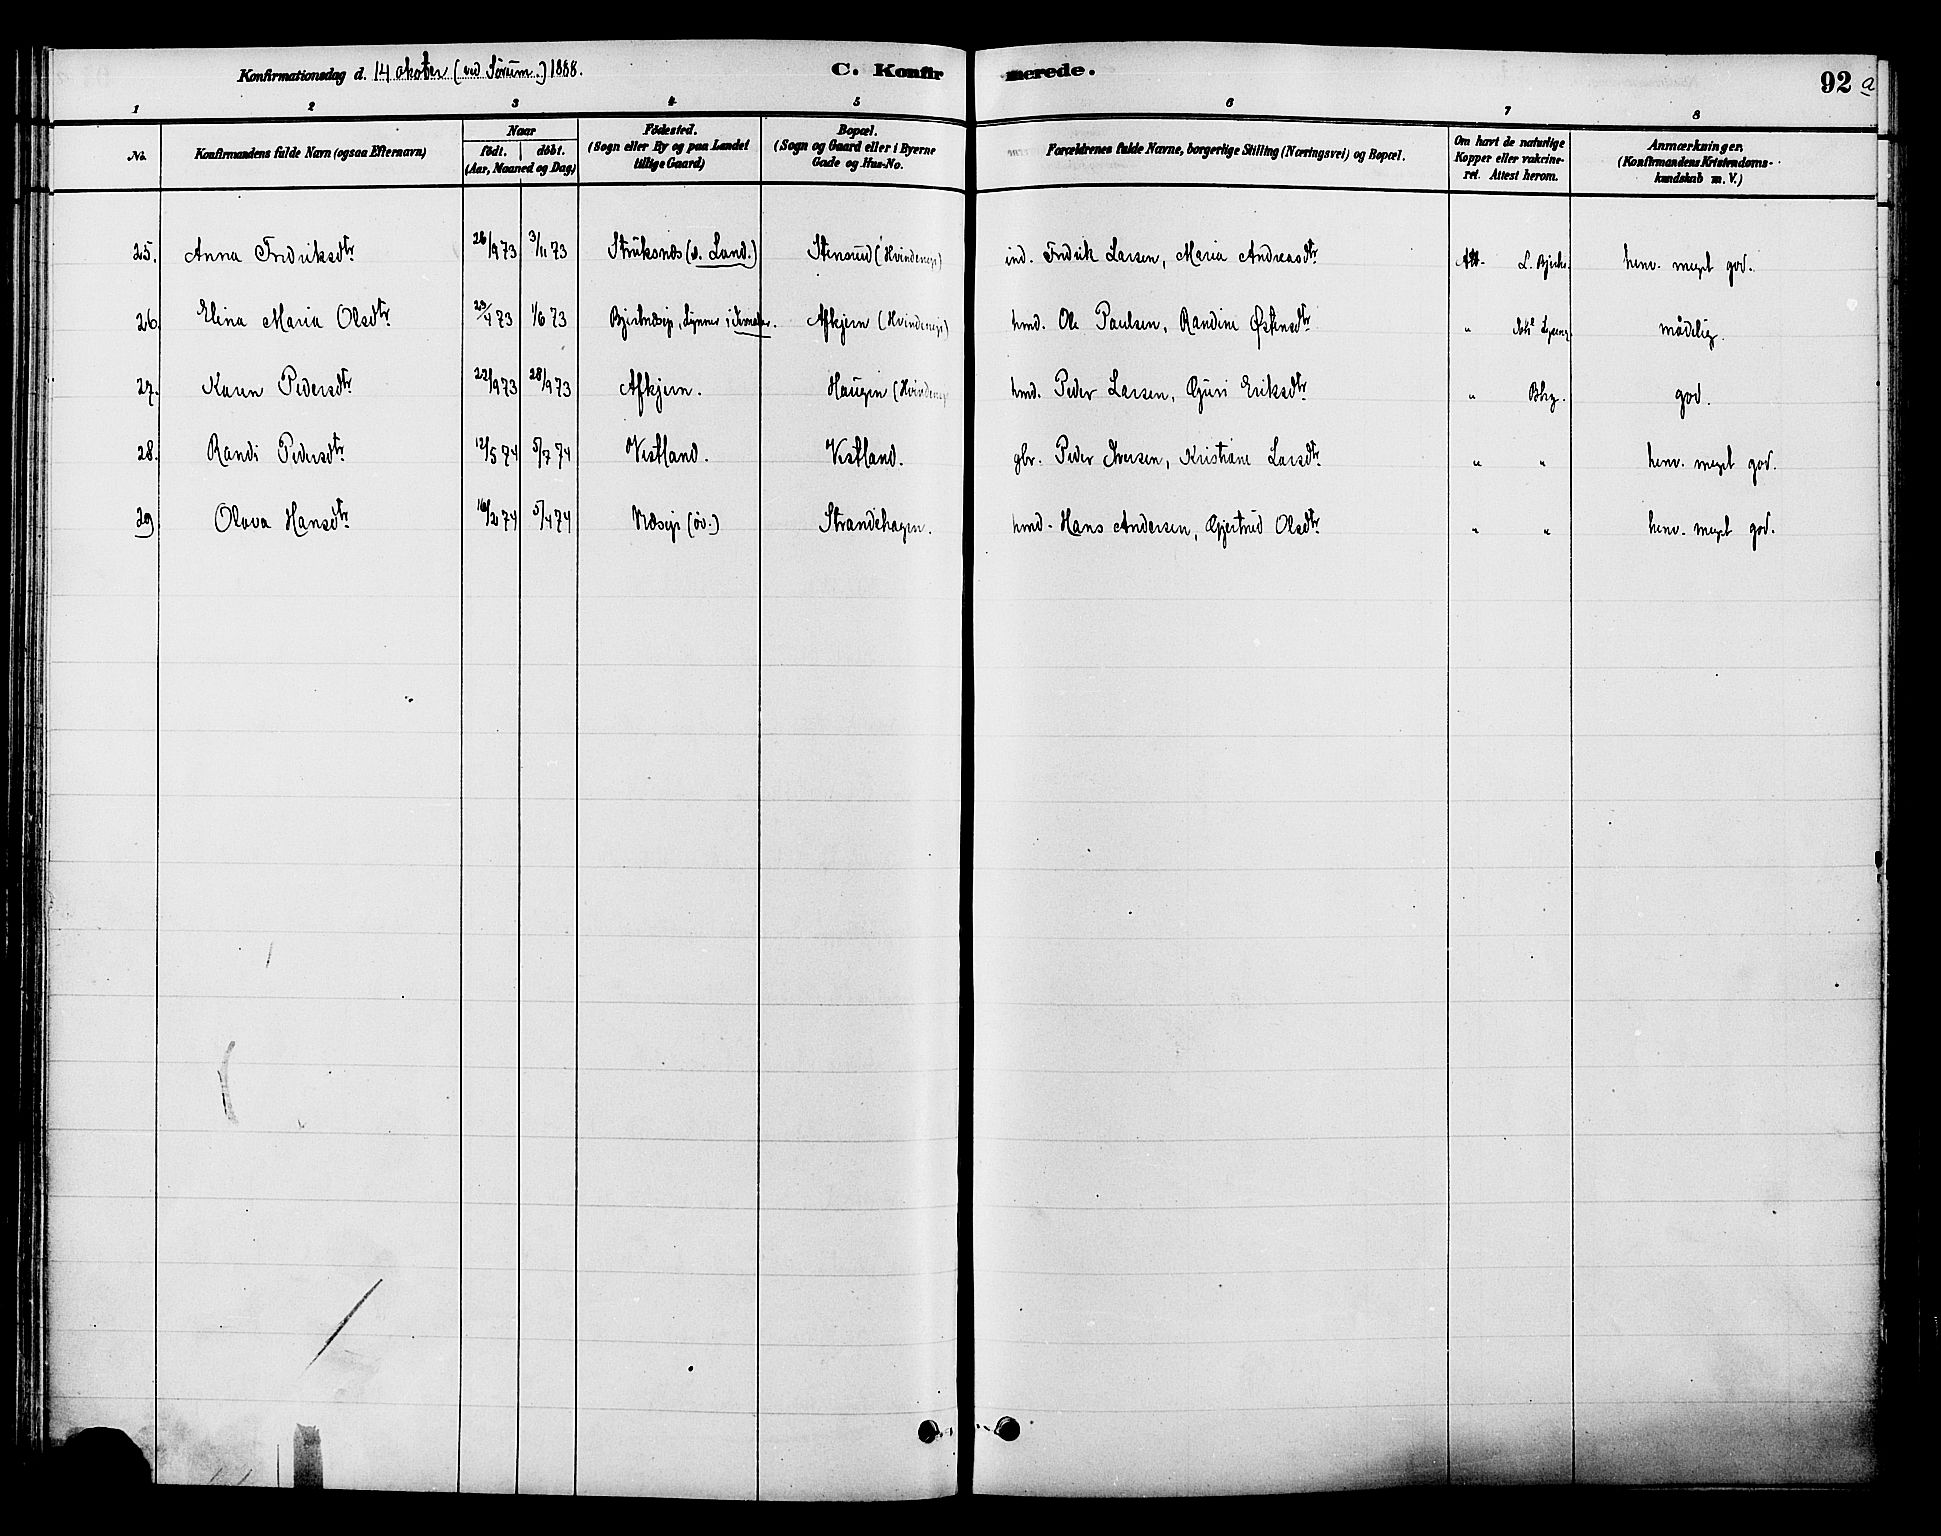 Konfirmationsdag d. 14 oktober (ved Sørum.) 1888. C. Konfirmerede. 92 a
1 2 3 4 5 6 7 8
No. Konfirmandens fulde Navn (ogsaa Efternavn) Naar født. døbt. (Aar, Maaned og Dag) Fødested. (Sogn eller By og paa Landet tillige Gaard) Bopæl. (Sogn og Gaard eller i Byerne Gade og Hus-No. Forældrenes fulde Navne, borgerlige Stilling (Næringsvei) og Bopæl. Om havt de naturlige Kopper eller vakcineret. Attest herom. Anmærkninger. (Konfirmandens Kristendomskundskab m. V.)
25. Anna Fredriksdtr 26/9 73 3/11 73 Struksnæs (s. Land.) Stensrud (Hvindenejr) ind. Fredrik Larsen, Maria Andreasdtr Att. L. henv. meget god.
26. Elina Maria Olsdtr 23/4 73 1/6 73 Afkjern (Hvindenejr) hmd. Ole Paulsen, Randine Østensdtr " mådelig.
27. Karen Pedersdtr 22/9 73 28/9 73 Afkjern. Haugen (Hvindenejr hmd. Peder Larsen, Guri Eriksdtr " Bhg. god.
28. Randi Pedersdtr 12/5 74 5/7 74 Vestland. Vestland. gbr. Peder Iversen, Kristiane Larsdtr " " henv. meget god.
29 Olava Hansdtr 16/2 74 5/4 74 Næsejr (øv.) Strandehagen. hmd. Hans Andersen, Gjertrud Olsdtr " " henv. meget god.